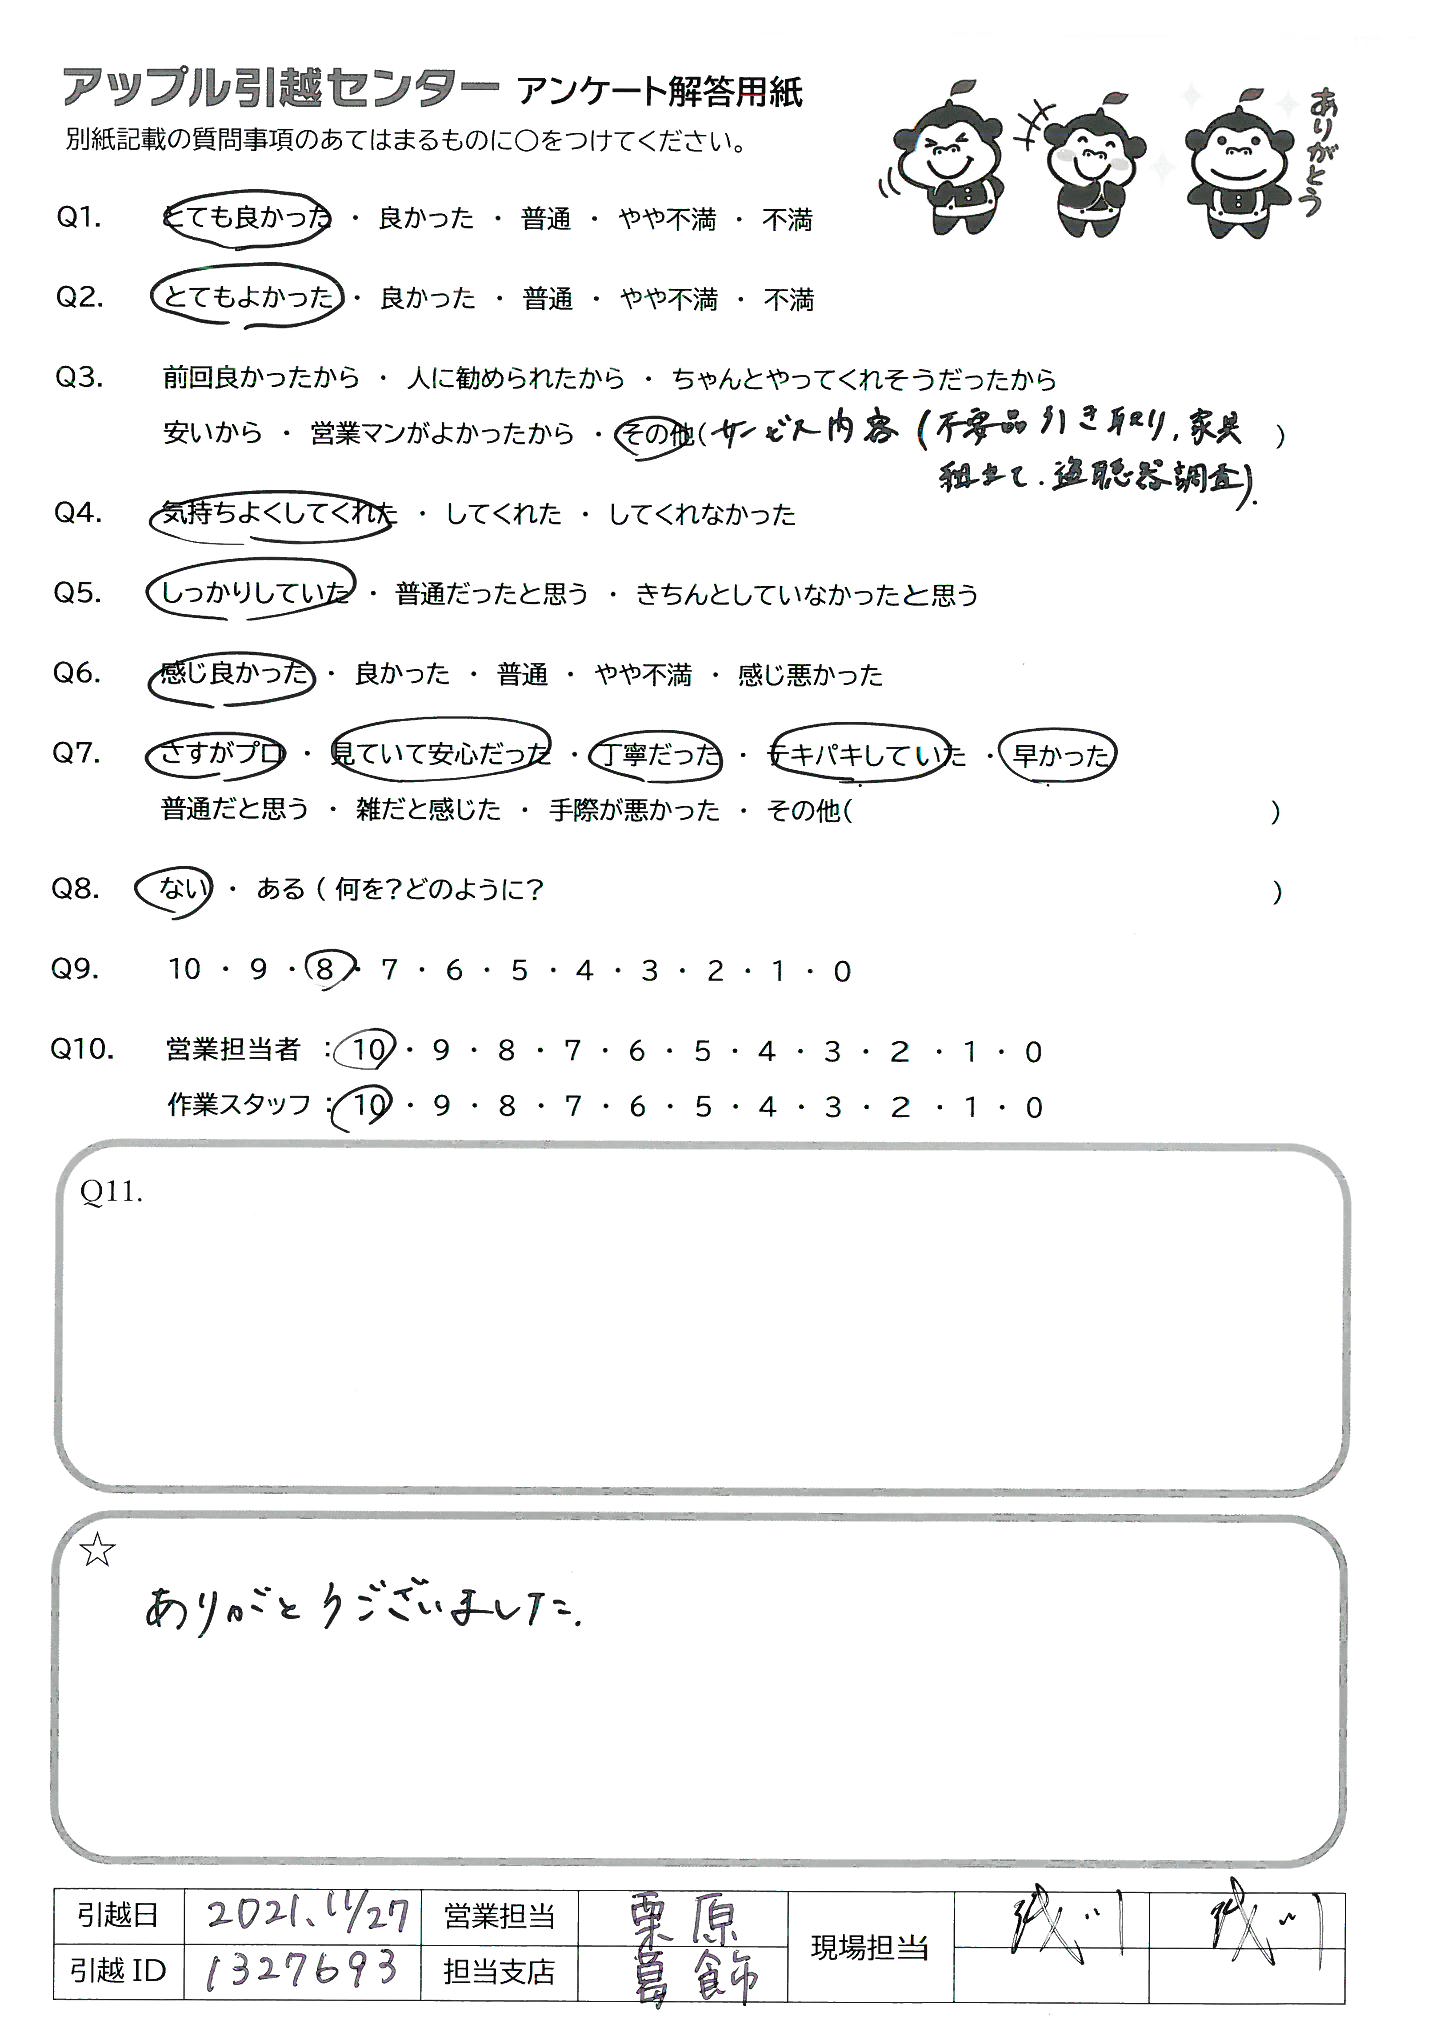 アップル引越センター アンケート解答用紙
別紙記載の質問事項のあてはまるものに○をつけてください。
ありがとう
Q1. とても良かった ・ 良かった ・ 普通 ・ やや不満 ・ 不満
Q2. とてもよかった ・ 良かった ・ 普通 ・ やや不満 ・ 不満
Q3. 前回良かったから ・ 人に勧められたから ・ ちゃんとやってくれそうだったから
安いから ・ 営業マンがよかったから ・ その他(サービス内容(不要品引き取り、家具 )
組立て、盗聴器調査).
Q4. 気持ちよくしてくれた ・ してくれた ・ してくれなかった
Q5. しっかりしていた ・ 普通だったと思う ・ きちんとしていなかったと思う
Q6. 感じ良かった ・ 良かった ・ 普通 ・ やや不満 ・ 感じ悪かった
Q7. さすがプロ ・ 見ていて安心だった ・ 丁寧だった ・ テキパキしていた ・ 早かった
普通だと思う ・ 雑だと感じた ・ 手際が悪かった ・ その他( )
Q8. ない ・ ある ( 何を?どのように? )
Q9. 10 ・ 9 ・ 8 ・ 7 ・ 6 ・ 5 ・ 4 ・ 3 ・ 2 ・ 1 ・ 0
Q10. 営業担当者 : 10 ・ 9 ・ 8 ・ 7 ・ 6 ・ 5 ・ 4 ・ 3 ・ 2 ・ 1 ・ 0
作業スタッフ : 10 ・ 9 ・ 8 ・ 7 ・ 6 ・ 5 ・ 4 ・ 3 ・ 2 ・ 1 ・ 0
Q11.
☆
ありがとうございました.
引越日 2021、11/27 営業担当 栗原 現場担当
引越 ID 1327693 担当支店 葛飾